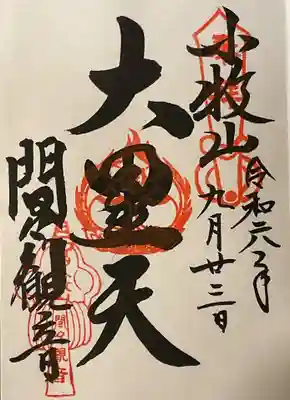 小牧山
令和六年
九月廿三日
大黒天
間々観音
間々観音